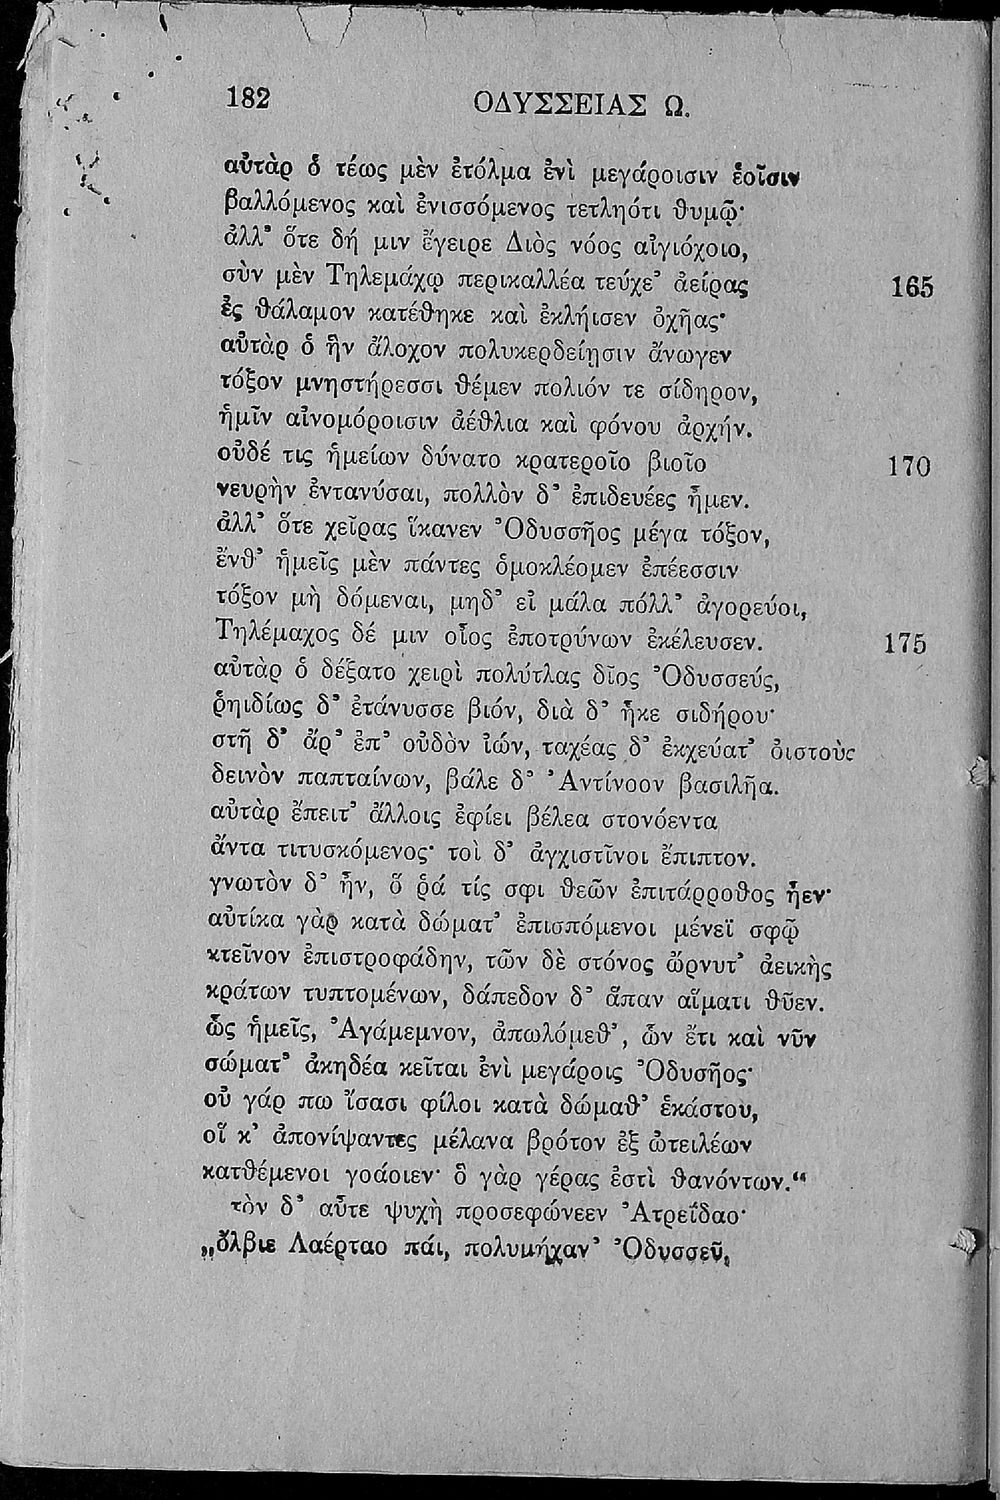 182 ΟΔΥΣΣΕΙΑΣ Ω.
αὐτὰρ ὁ τέως μὲν ἐτόλμα ἐνὶ μεγάροισιν ἑοῖσιν
βαλλόμενος καὶ ἐνισσόμενος τετληότι θυμῷ·
ἀλλ’ ὅτε δή μιν ἔγειρε Διὸς νόος αἰγιόχοιο,
σὺν μὲν Τηλεμάχῳ περικαλλέα τεύχε’ ἀείρας 165
ἐς θάλαμον κατέθηκε καὶ ἐκλήισεν ὀχῆας·
αὐτὰρ ὁ ἣν ἄλοχον πολυκερδείῃσιν ἄνωγεν
τόξον μνηστήρεσσι θέμεν πολιόν τε σίδηρον,
ἡμῖν αἰνομόροισιν ἀέθλια καὶ φόνου ἀρχήν.
οὐδέ τις ἡμείων δύνατο κρατεροῖο βιοῖο 170
νευρὴν ἐντανύσαι, πολλὸν δ’ ἐπιδευέες ἦμεν.
ἀλλ’ ὅτε χεῖρας ἵκανεν Ὀδυσσῆος μέγα τόξον,
ἔνθ’ ἡμεῖς μὲν πάντες ὁμοκλέομεν ἐπέεσσιν
τόξον μὴ δόμεναι, μηδ’ εἰ μάλα πόλλ’ ἀγορεύοι,
Τηλέμαχος δέ μιν οἶος ἐποτρύνων ἐκέλευσεν. 175
αὐτὰρ ὁ δέξατο χειρὶ πολύτλας δῖος Ὀδυσσεύς,
ῥηιδίως δ’ ἐτάνυσσε βιόν, διὰ δ’ ἧκε σιδήρου·
στῆ δ’ ἄρ’ ἐπ’ οὐδὸν ἰών, ταχέας δ’ ἐκχεύατ’ ὀιστοὺς
δεινὸν παπταίνων, βάλε δ’ Ἀντίνοον βασιλῆα.
αὐτὰρ ἔπειτ’ ἄλλοις ἐφίει βέλεα στονόεντα
ἄντα τιτυσκόμενος· τοὶ δ’ ἀγχιστῖνοι ἔπιπτον.
γνωτὸν δ’ ἦν, ὅ ῥά τίς σφι θεῶν ἐπιτάρροθος ἦεν·
αὐτίκα γὰρ κατὰ δώματ’ ἐπισπόμενοι μένεϊ σφῷ
κτεῖνον ἐπιστροφάδην, τῶν δὲ στόνος ὤρνυτ’ ἀεικὴς
κράτων τυπτομένων, δάπεδον δ’ ἅπαν αἵματι θῦεν.
ὣς ἡμεῖς, Ἀγάμεμνον, ἀπωλόμεθ’, ὧν ἔτι καὶ νῦν
σώματ’ ἀκηδέα κεῖται ἐνὶ μεγάροις Ὀδυσῆος·
οὐ γάρ πω ἴσασι φίλοι κατὰ δώμαθ’ ἑκάστου,
οἵ κ’ ἀπονίψαντες μέλανα βρότον ἐξ ὠτειλέων
κατθέμενοι γοάοιεν· ὃ γὰρ γέρας ἐστὶ θανόντων.“
τὸν δ’ αὖτε ψυχὴ προσεφώνεεν Ἀτρεΐδαο·
„ὄλβιε Λαέρταο πάι, πολυμήχαν’ Ὀδυσσεῦ,